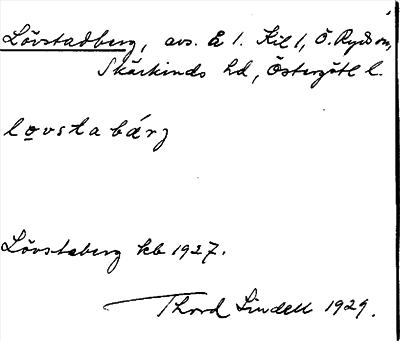 Lövstadberg, avs. å 1. Kil 1, Ö. Ryds sn,
Skärkinds hd, Östergötl l.
lovstabárj
Lövstaberg kb 1927.
Thord Lindell 1929.